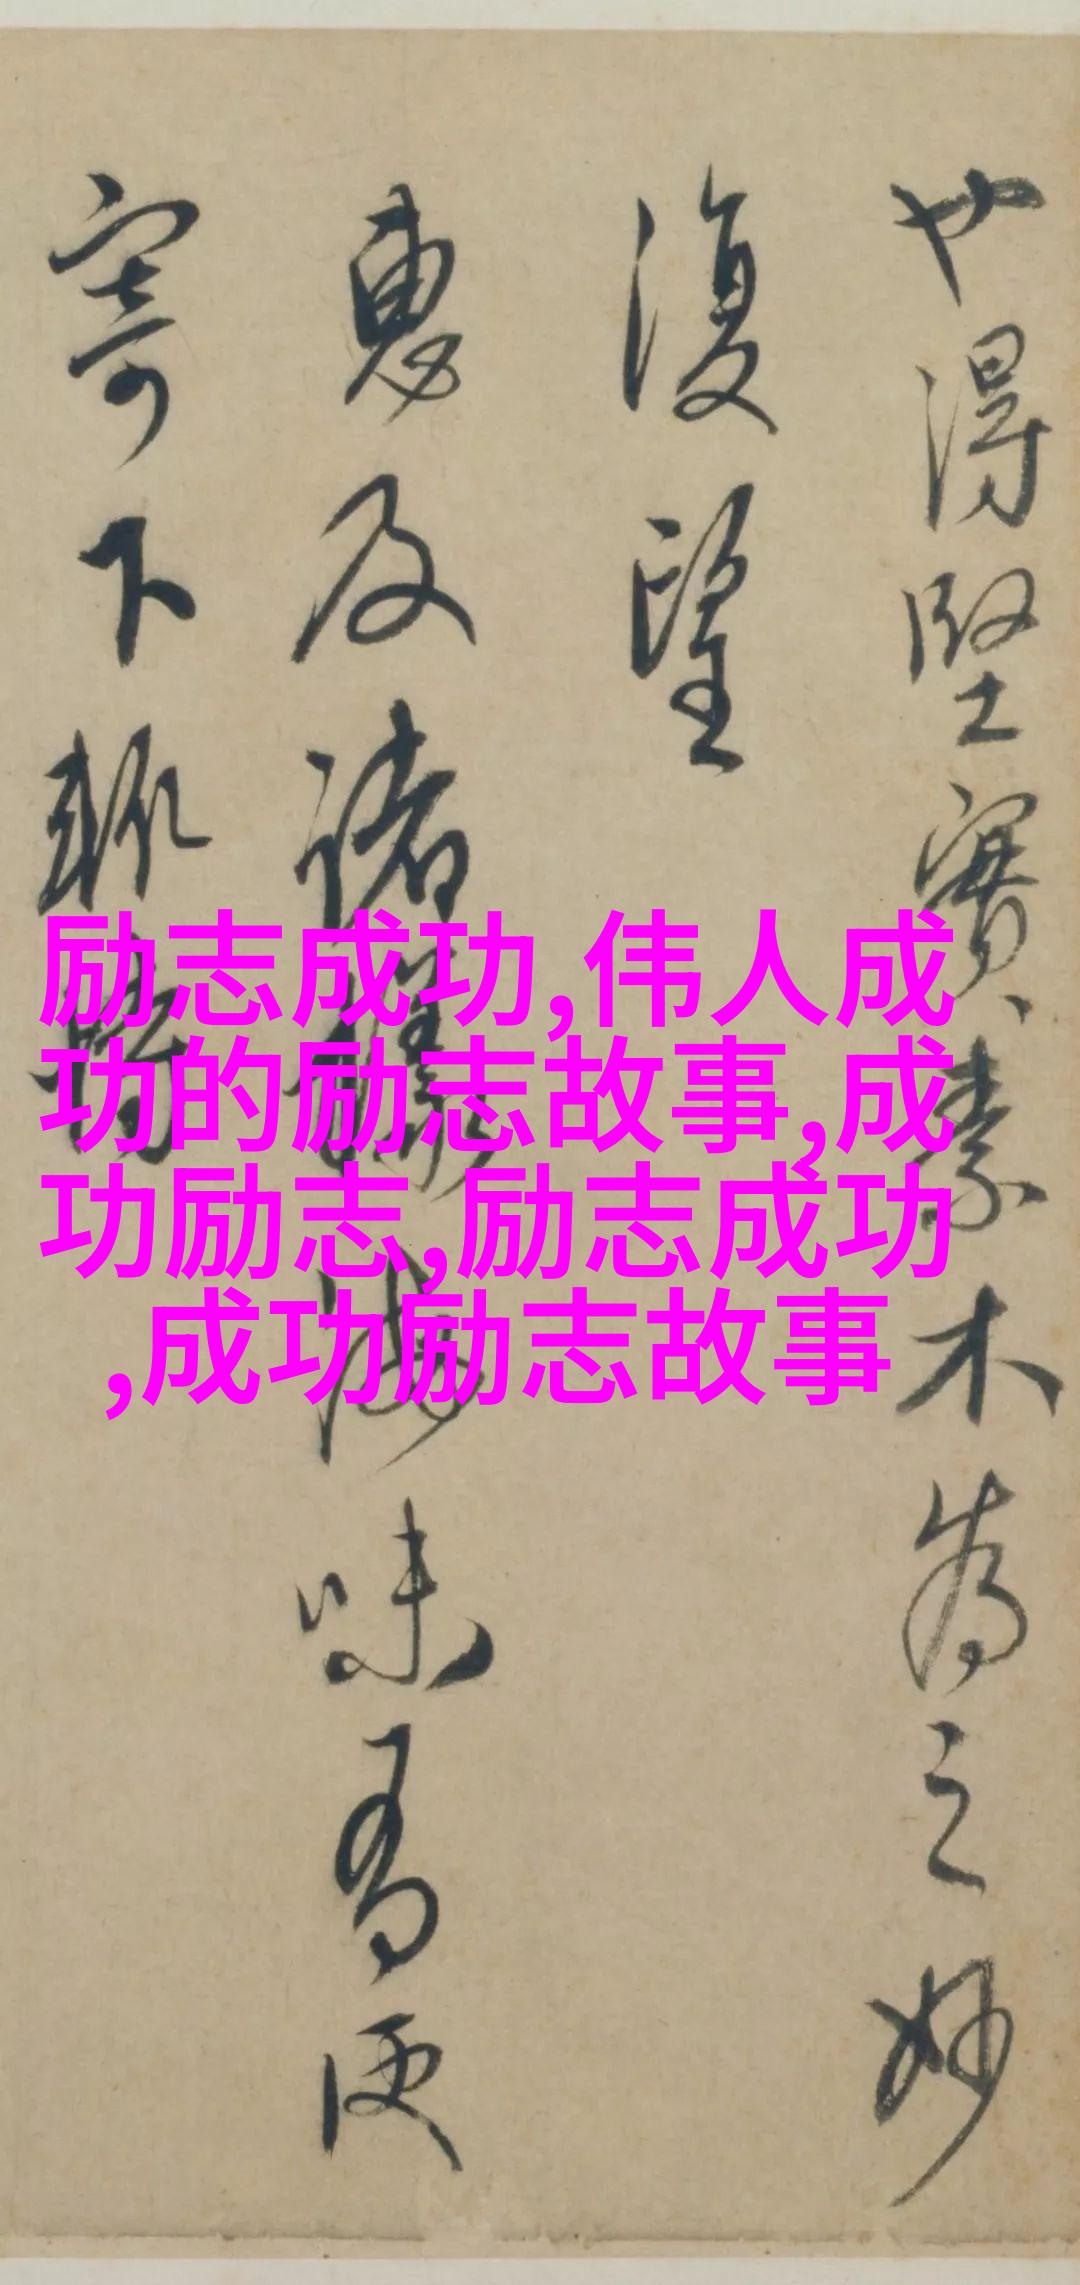 也得坚實素木为之妙
復望
惠及诸
海味有便
寄下
励志成功,伟人成
功的励志故事,成
功励志,励志成功
,成功励志故事